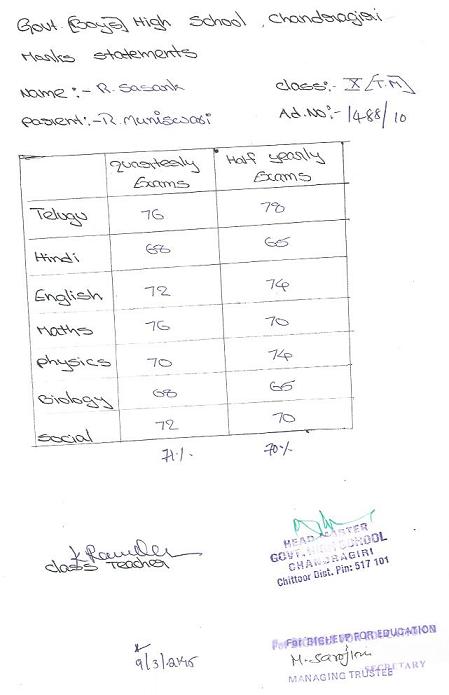 Govt. [Boys] High School, Chandragiri
Marks statements
Name:- R. Sasank class:- X [T.M]
Parent:- R. Muniswari Ad.No:- 1488/10
Quarterly Exams Half yearly Exams
Telugu 76 78
Hindi 68 65
English 72 74
Maths 76 70
Physics 70 74
Biology 68 65
Social 72 70
71.% 70%
class Teacher
HEAD MASTER
GOVT. HIGH SCHOOL
CHANDRAGIRI
Chittoor Dist. Pin: 517 101
For BIGHELP FOR EDUCATION
M. Sarojini
SECRETARY
MANAGING TRUSTEE